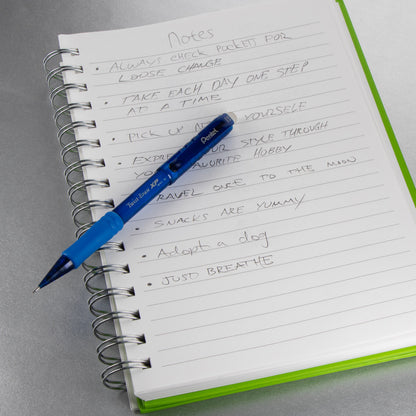 Notes
• ALWAYS CHECK POCKED FOR
LOOSE CHANGE
• TAKE EACH DAY ONE STEP
AT A TIME
• PICK UP YOURSELF
• YOUR STYLE THROUGH
FAVOURITE HOBBY
ONCE TO THE MOON
• SNACKS ARE YUMMY
• Adopt a dog
• JUST BREATHE
Pentel
Twist-Erase XP